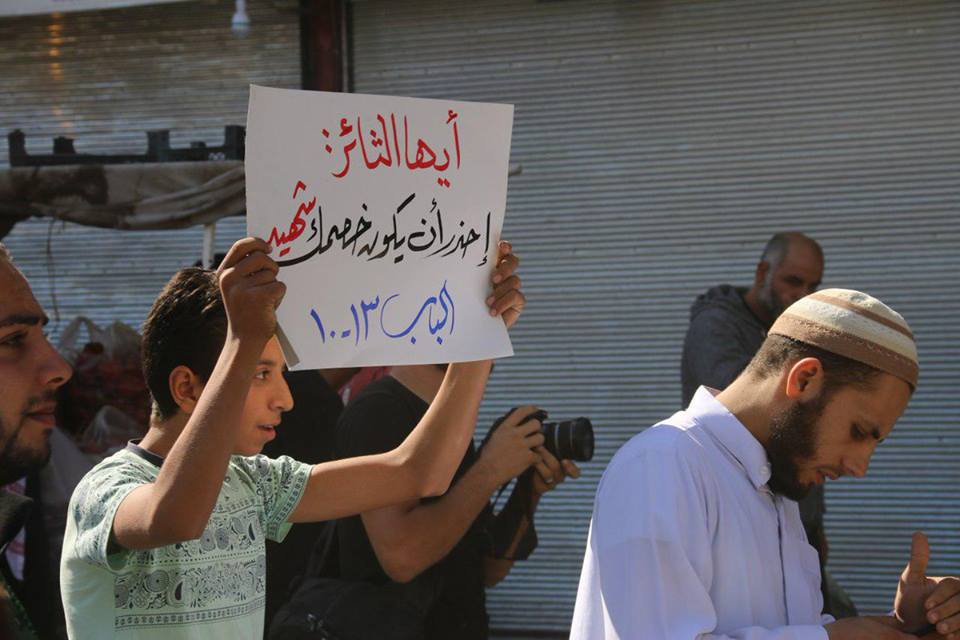 أيها الثائر:
إحذر أن يكون خصمك شهيد
الباب ١٣-١٠